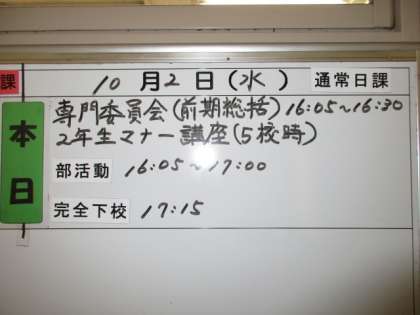 課 10月2日(水) 通常日課
本日
専門委員会(前期総括)16:05~16:30
2年生マナー講座(5校時)
部活動 16:05~17:00
完全下校 17:15